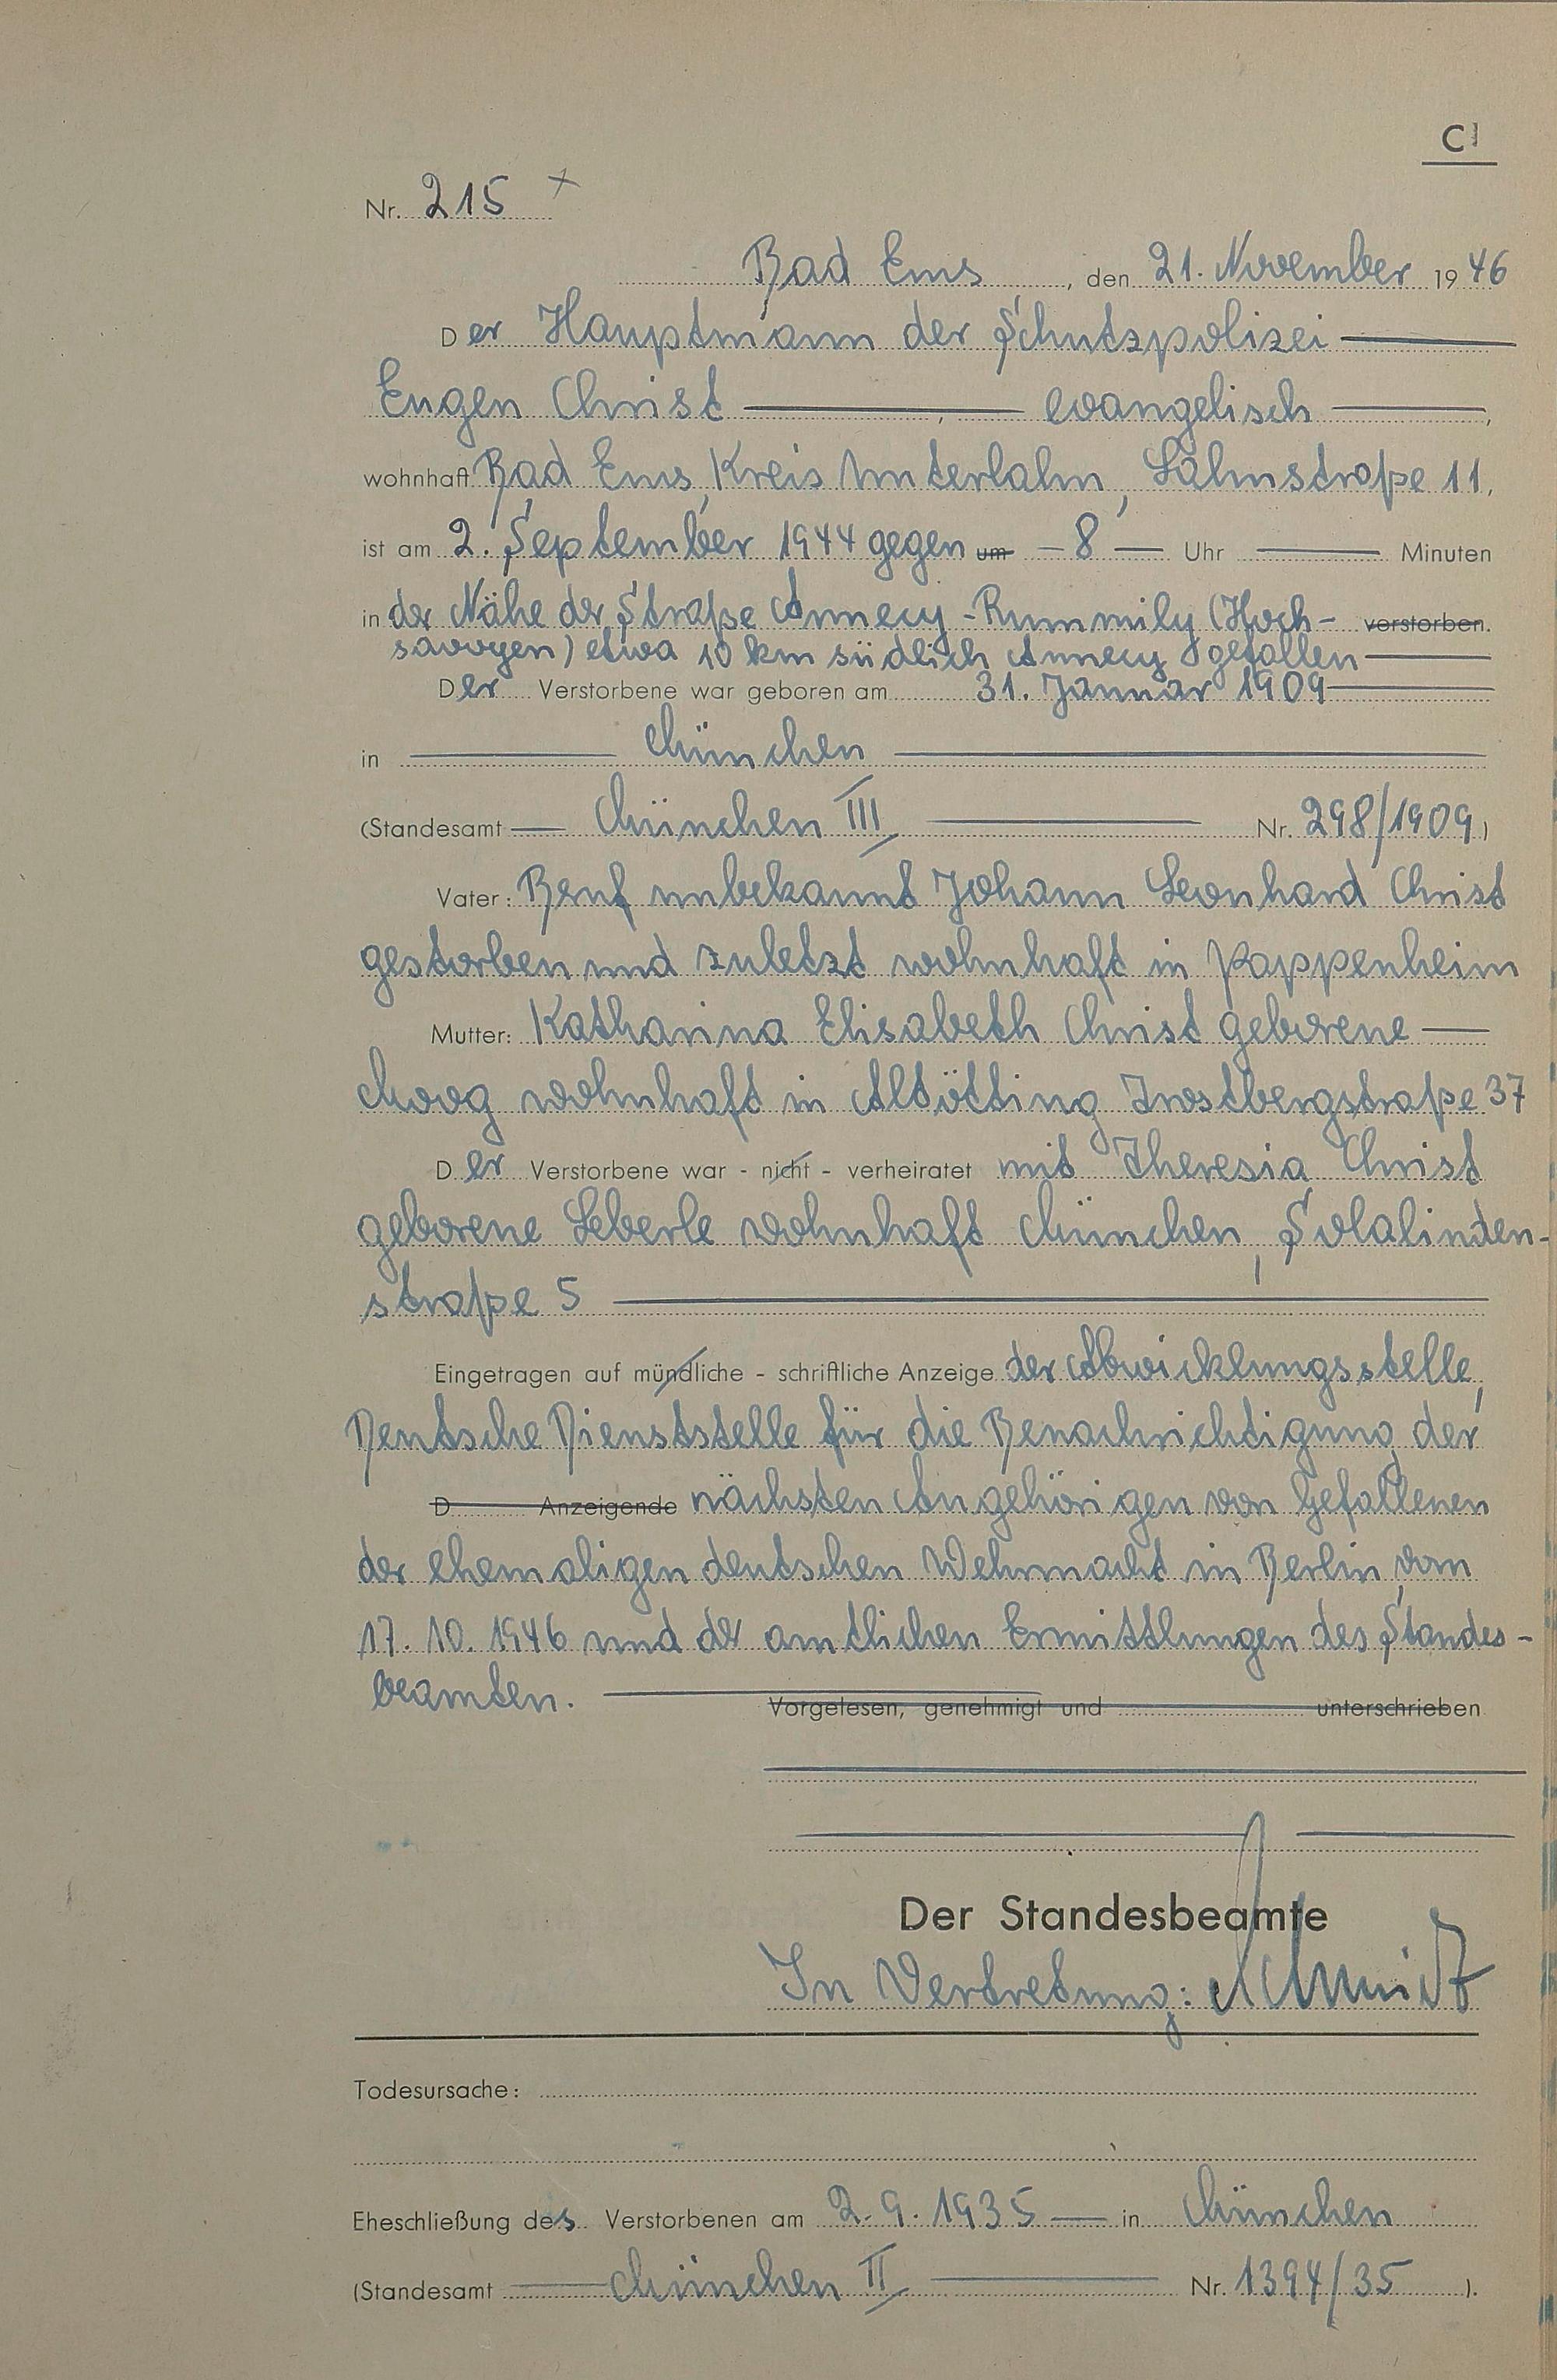 C
Nr. 215 x
Bad Ems, den 21. November 1946
Der Hauptmann der Schutzpolizei
Eugen Christ, evangelisch,
wohnhaft Bad Ems, Kreis Unterlahn, Lahnstraße 11,
ist am 2. September 1944 gegen um 8 Uhr Minuten
in der Nähe der Straße Annecy-Rummily (Hoch- verstorben.
savoyen) etwa 10 km südlich Annecy gefallen
Der Verstorbene war geboren am 31. Januar 1909
in München
(Standesamt München III Nr. 298/1909)
Vater: Beruf unbekannt Johann Leonhard Christ
gestorben und zuletzt wohnhaft in Pappenheim
Mutter: Katharina Elisabeth Christ geborene
Moog wohnhaft in Altötting Trostbergstraße 37
Der Verstorbene war - nicht - verheiratet mit Theresia Christ
geborene Leberle wohnhaft München, Solalinden-
straße 5
Eingetragen auf mündliche - schriftliche Anzeige der Abwicklungsstelle,
Deutsche Dienststelle für die Benachrichtigung der
D Anzeigende nächsten Angehörigen von Gefallenen
der ehemaligen deutschen Wehrmacht in Berlin vom
17. 10. 1946 und der amtlichen Ermittlungen des Standes-
beamten. Vorgelesen, genehmigt und unterschrieben
Der Standesbeamte
In Vertretung: Schmidt
Todesursache:
Eheschließung des Verstorbenen am 2.9.1935 in München
(Standesamt München II Nr. 1394/35).